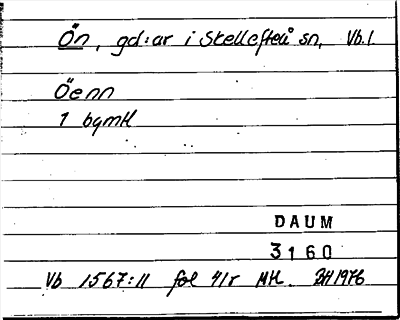 Ön, gd:ar i Skellefteå sn, Vb.l.
Öenn
1 bgmH
DAUM
3160
Vb 1567:11 fol 41r MH. BH 1976